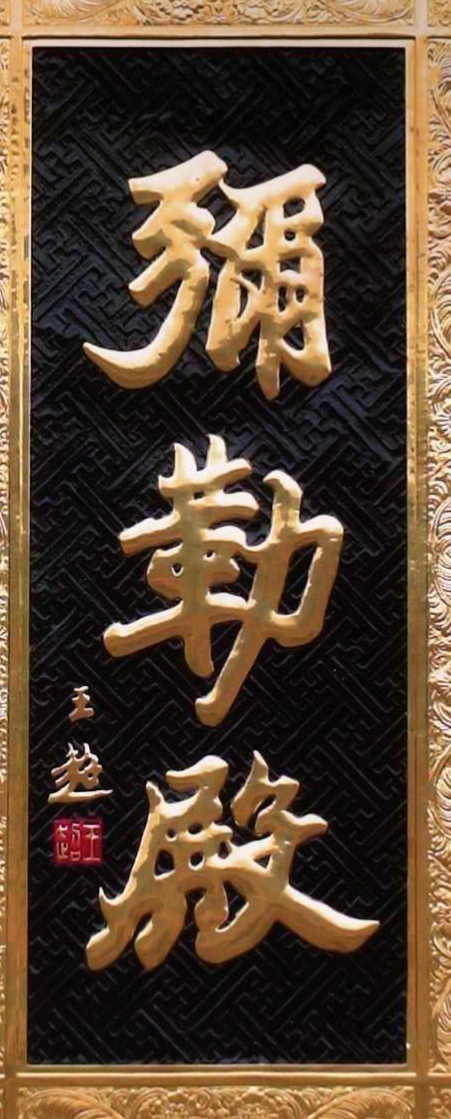 彌勒殿
王超
王超